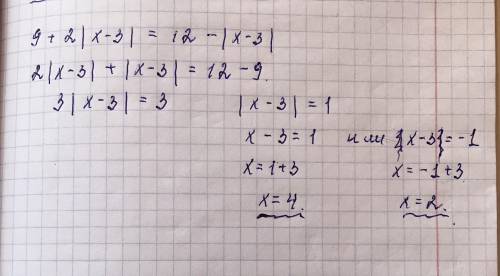 9 + 2|x-3| = 12 - |x-3|
2|x-3| + |x-3| = 12 - 9.
3|x-3| = 3 |x-3| = 1
x - 3 = 1 или {x-3}= -1
x = 1+3 x = -1+3
x = 4. x = 2.